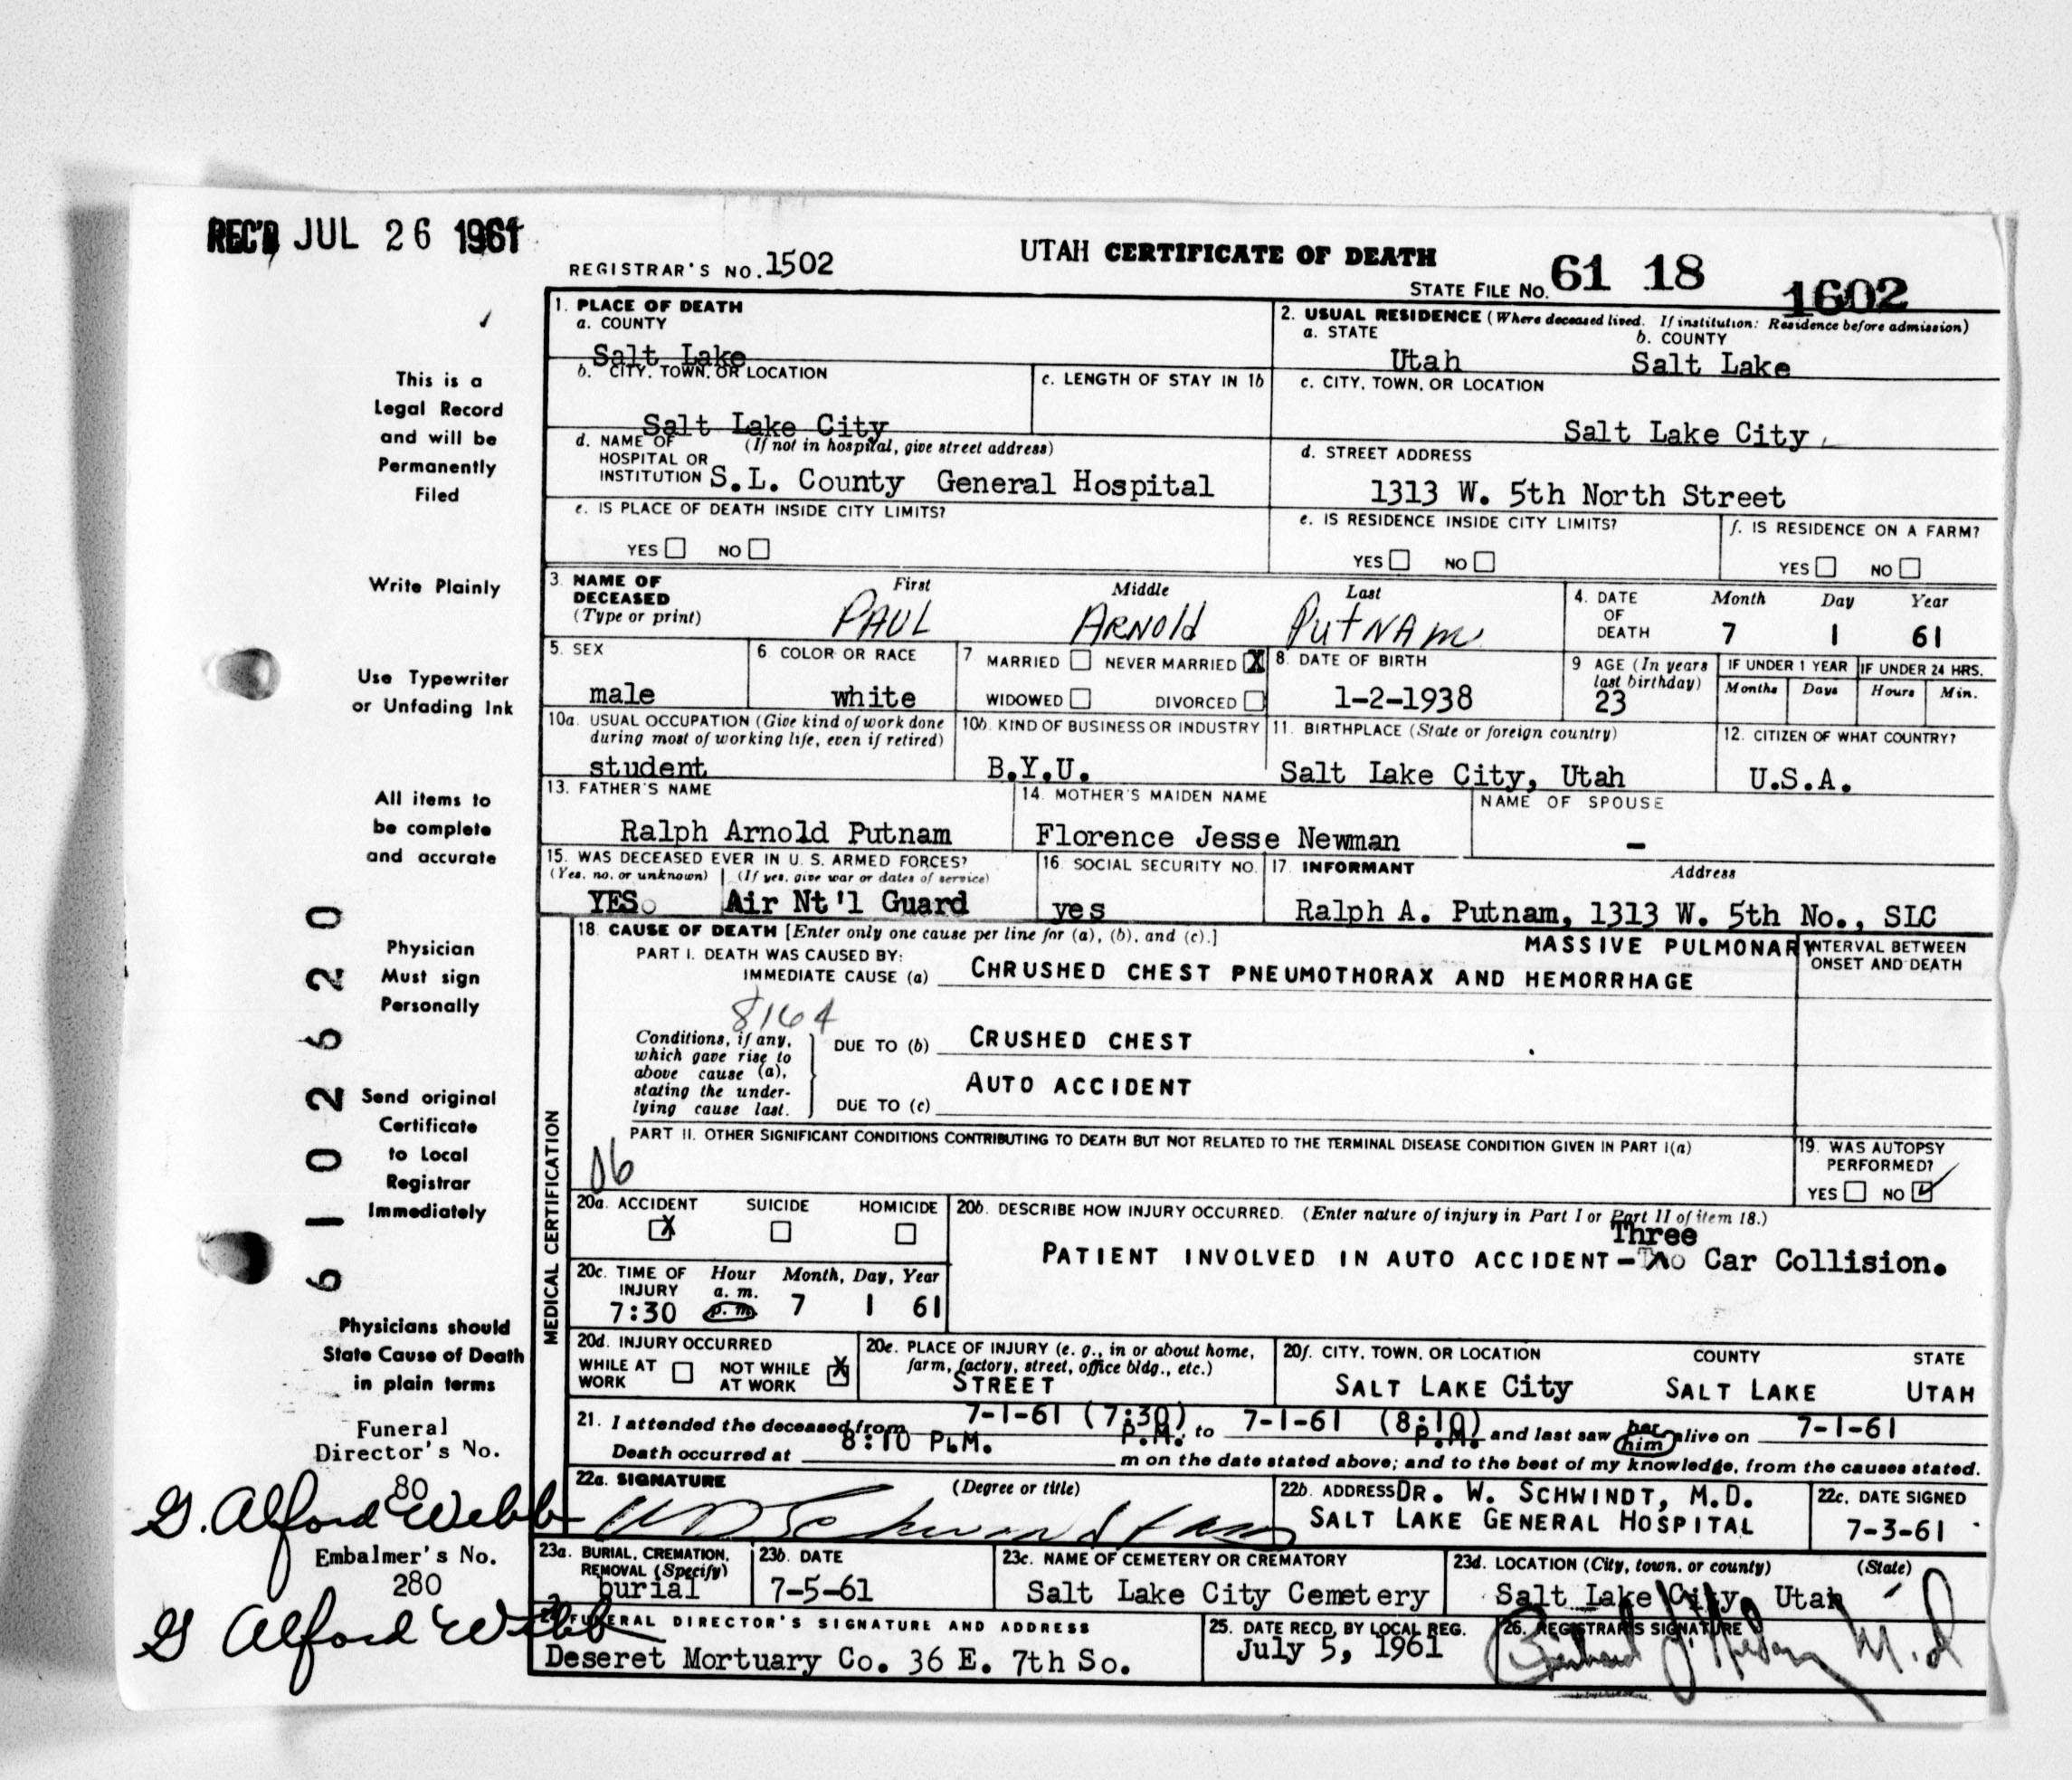 REC'D JUL 26 1961
REGISTRAR'S NO. 1502
UTAH CERTIFICATE OF DEATH
STATE FILE NO. 61 18 1602
This is a
Legal Record
and will be
Permanently
Filed
Write Plainly
Use Typewriter
or Unfading Ink
All items to
be complete
and accurate
Physician
Must sign
Personally
Send original
Certificate
to Local
Registrar
Immediately
Physicians should
State Cause of Death
in plain terms
Funeral
Director's No.
80
G. Alford Webb
Embalmer's No.
280
G Alford Webb
6102620
1. PLACE OF DEATH
a. COUNTY
Salt Lake
b. CITY, TOWN, OR LOCATION
Salt Lake City
c. LENGTH OF STAY IN 1b
d. NAME OF (If not in hospital, give street address)
HOSPITAL OR
INSTITUTION S.L. County General Hospital
e. IS PLACE OF DEATH INSIDE CITY LIMITS?
YES NO
2. USUAL RESIDENCE (Where deceased lived. If institution: Residence before admission)
a. STATE b. COUNTY
Utah Salt Lake
c. CITY, TOWN, OR LOCATION
Salt Lake City
d. STREET ADDRESS
1313 W. 5th North Street
e. IS RESIDENCE INSIDE CITY LIMITS?
YES NO
f. IS RESIDENCE ON A FARM?
YES NO
3. NAME OF First Middle Last
DECEASED
(Type or print) PAUL ARNOLD PUTNAM
4. DATE Month Day Year
OF
DEATH 7 1 61
5. SEX
male
6. COLOR OR RACE
white
7. MARRIED NEVER MARRIED X
WIDOWED DIVORCED
8. DATE OF BIRTH
1-2-1938
9 AGE (In years
last birthday)
23
IF UNDER 1 YEAR
Months Days
IF UNDER 24 HRS.
Hours Min.
10a. USUAL OCCUPATION (Give kind of work done
during most of working life, even if retired)
student
10b. KIND OF BUSINESS OR INDUSTRY
B.Y.U.
11. BIRTHPLACE (State or foreign country)
Salt Lake City, Utah
12. CITIZEN OF WHAT COUNTRY?
U.S.A.
13. FATHER'S NAME
Ralph Arnold Putnam
14. MOTHER'S MAIDEN NAME
Florence Jesse Newman
NAME OF SPOUSE
-
15. WAS DECEASED EVER IN U. S. ARMED FORCES?
(Yes, no, or unknown) (If yes, give war or dates of service)
YES Air Nt'l Guard
16. SOCIAL SECURITY NO.
yes
17. INFORMANT Address
Ralph A. Putnam, 1313 W. 5th No., SLC
MEDICAL CERTIFICATION
18. CAUSE OF DEATH [Enter only one cause per line for (a), (b), and (c).]
PART I. DEATH WAS CAUSED BY: MASSIVE PULMONARY
IMMEDIATE CAUSE (a) CHRUSHED CHEST PNEUMOTHORAX AND HEMORRHAGE
INTERVAL BETWEEN
ONSET AND DEATH
8164
Conditions, if any,
which gave rise to
above cause (a),
stating the under-
lying cause last.
DUE TO (b) CRUSHED CHEST
AUTO ACCIDENT
DUE TO (c)
PART II. OTHER SIGNIFICANT CONDITIONS CONTRIBUTING TO DEATH BUT NOT RELATED TO THE TERMINAL DISEASE CONDITION GIVEN IN PART I(a)
06
19. WAS AUTOPSY
PERFORMED?
YES NO
20a. ACCIDENT SUICIDE HOMICIDE
X
20b. DESCRIBE HOW INJURY OCCURRED. (Enter nature of injury in Part I or Part II of item 18.)
Three
PATIENT INVOLVED IN AUTO ACCIDENT - Car Collision.
20c. TIME OF Hour Month, Day, Year
INJURY a. m.
7:30 p. m. 7 1 61
20d. INJURY OCCURRED
WHILE AT NOT WHILE X
WORK AT WORK
20e. PLACE OF INJURY (e. g., in or about home,
farm, factory, street, office bldg., etc.)
STREET
20f. CITY, TOWN, OR LOCATION COUNTY STATE
SALT LAKE CITY SALT LAKE UTAH
21. I attended the deceased from 7-1-61 (7:30) P.M. to 7-1-61 (8:10) P.M. and last saw her him alive on 7-1-61
Death occurred at 8:10 P.M. m on the date stated above; and to the best of my knowledge, from the causes stated.
22a. SIGNATURE (Degree or title)
22b. ADDRESS DR. W. SCHWINDT, M.D.
SALT LAKE GENERAL HOSPITAL
22c. DATE SIGNED
7-3-61
23a. BURIAL, CREMATION,
REMOVAL (Specify)
burial
23b. DATE
7-5-61
23c. NAME OF CEMETERY OR CREMATORY
Salt Lake City Cemetery
23d. LOCATION (City, town, or county) (State)
Salt Lake City, Utah
24. FUNERAL DIRECTOR'S SIGNATURE AND ADDRESS
Deseret Mortuary Co. 36 E. 7th So.
25. DATE RECD. BY LOCAL REG.
July 5, 1961
26. REGISTRAR'S SIGNATURE